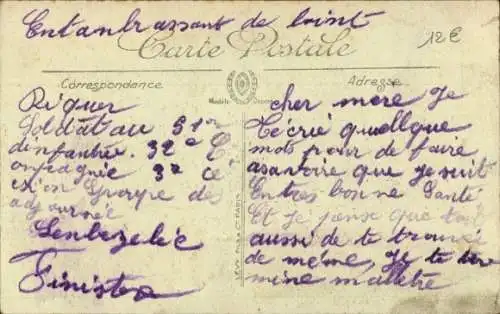 Entanbrassant de loint
Carte Postale
12€
Correspondance
Adresse
Modèle
Riguer
Soldat au 51er
dinfantrie. 32e C
onpagnie 3e cé
xion Groupe des
ajournée
Lenbezeléc
Finistere
cher mere Je
técrié quellque
mots pour de faire
asavoire que je suit
Entres bonne Santé
Et Je panse que
aussi de te trouvée
de meme, Je te
mine ma lettre